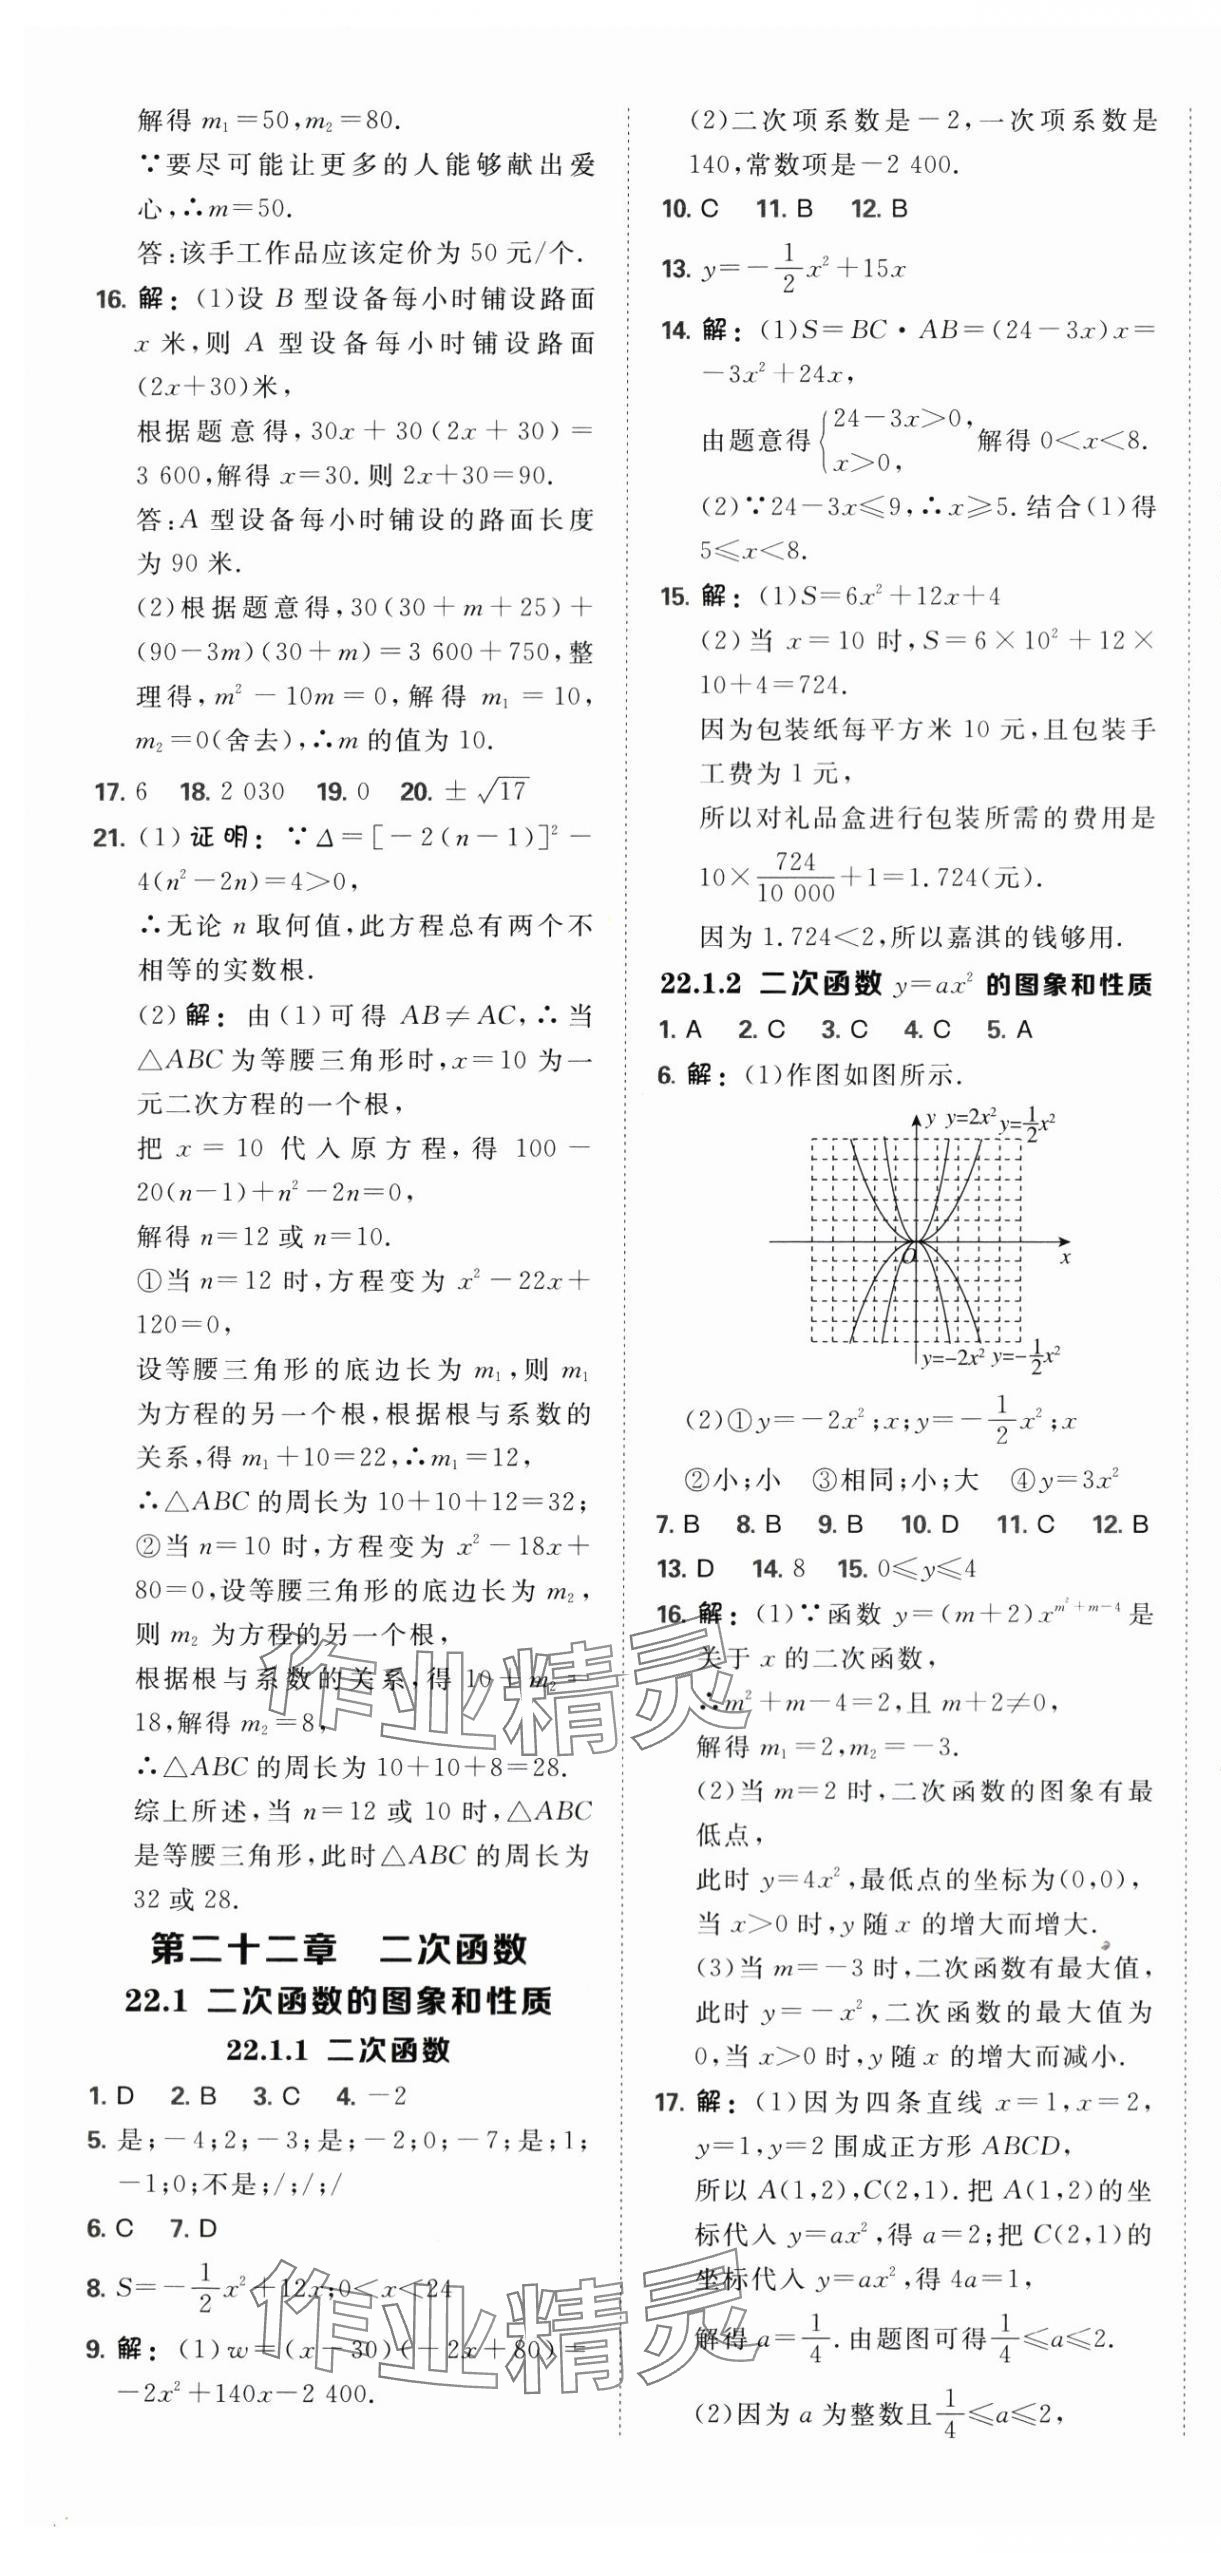 解得 m₁=50,m₂=80.
∵要尽可能让更多的人能够献出爱
心,∴m=50.
答:该手工作品应该定价为 50 元/个.
16. 解:(1)设 B 型设备每小时铺设路面
x 米,则 A 型设备每小时铺设路面
(2x+30)米,
根据题意得,30x+30(2x+30)=
3 600,解得 x=30.则 2x+30=90.
答:A 型设备每小时铺设的路面长度
为 90 米.
(2)根据题意得,30(30+m+25)+
(90-3m)(30+m)=3 600+750,整
理得,m²-10m=0,解得 m₁=10,
m₂=0(舍去),∴m 的值为 10.
17. 6 18. 2 030 19. 0 20. ±√17
21. (1)证明:∵Δ=[-2(n-1)]²-
4(n²-2n)=4>0,
∴无论 n 取何值,此方程总有两个不
相等的实数根.
(2)解:由(1)可得 AB≠AC,∴当
△ABC 为等腰三角形时,x=10 为一
元二次方程的一个根,
把 x=10 代入原方程,得 100-
20(n-1)+n²-2n=0,
解得 n=12 或 n=10.
①当 n=12 时,方程变为 x²-22x+
120=0,
设等腰三角形的底边长为 m₁,则 m₁
为方程的另一个根,根据根与系数的
关系,得 m₁+10=22,∴m₁=12,
∴△ABC 的周长为 10+10+12=32;
②当 n=10 时,方程变为 x²-18x+
80=0,设等腰三角形的底边长为 m₂,
则 m₂ 为方程的另一个根,
根据根与系数的关系,得 10+m₂=
18,解得 m₂=8,
∴△ABC 的周长为 10+10+8=28.
综上所述,当 n=12 或 10 时,△ABC
是等腰三角形,此时△ABC 的周长为
32 或 28.
第二十二章 二次函数
22.1 二次函数的图象和性质
22.1.1 二次函数
1. D 2. B 3. C 4. -2
5. 是;-4;2;-3;是;-2;0;-7;是;1;
-1;0;不是;/;/;/
6. C 7. D
8. S=-1/2x²+12x;0<x<24
9. 解:(1)w=(x-30)(-2x+80)=
-2x²+140x-2 400.
(2)二次项系数是-2,一次项系数是
140,常数项是-2 400.
10. C 11. B 12. B
13. y=-1/2x²+15x
14. 解:(1)S=BC·AB=(24-3x)x=
-3x²+24x,
由题意得{24-3x>0, x>0, 解得 0<x<8.
(2)∵24-3x≤9,∴x≥5.结合(1)得
5≤x<8.
15. 解:(1)S=6x²+12x+4
(2)当 x=10 时,S=6×10²+12×
10+4=724.
因为包装纸每平方米 10 元,且包装手
工费为 1 元,
所以对礼品盒进行包装所需的费用是
10×724/10 000+1=1.724(元).
因为 1.724<2,所以嘉淇的钱够用.
22.1.2 二次函数 y=ax² 的图象和性质
1. A 2. C 3. C 4. C 5. A
6. 解:(1)作图如图所示.
y y=2x² y=1/2x²
O x
y=-2x² y=-1/2x²
(2)①y=-2x²;x;y=-1/2x²;x
②小;小 ③相同;小;大 ④y=3x²
7. B 8. B 9. B 10. D 11. C 12. B
13. D 14. 8 15. 0≤y≤4
16. 解:(1)∵函数 y=(m+2)x^(m²+m-4) 是
关于 x 的二次函数,
∴m²+m-4=2,且 m+2≠0,
解得 m₁=2,m₂=-3.
(2)当 m=2 时,二次函数的图象有最
低点,
此时 y=4x²,最低点的坐标为(0,0),
当 x>0 时,y 随 x 的增大而增大.
(3)当 m=-3 时,二次函数有最大值,
此时 y=-x²,二次函数的最大值为
0,当 x>0 时,y 随 x 的增大而减小.
17. 解:(1)因为四条直线 x=1,x=2,
y=1,y=2 围成正方形 ABCD,
所以 A(1,2),C(2,1).把 A(1,2)的坐
标代入 y=ax²,得 a=2;把 C(2,1)的
坐标代入 y=ax²,得 4a=1,
解得 a=1/4.由题图可得1/4≤a≤2.
(2)因为 a 为整数且1/4≤a≤2,
作业精灵
作业精灵